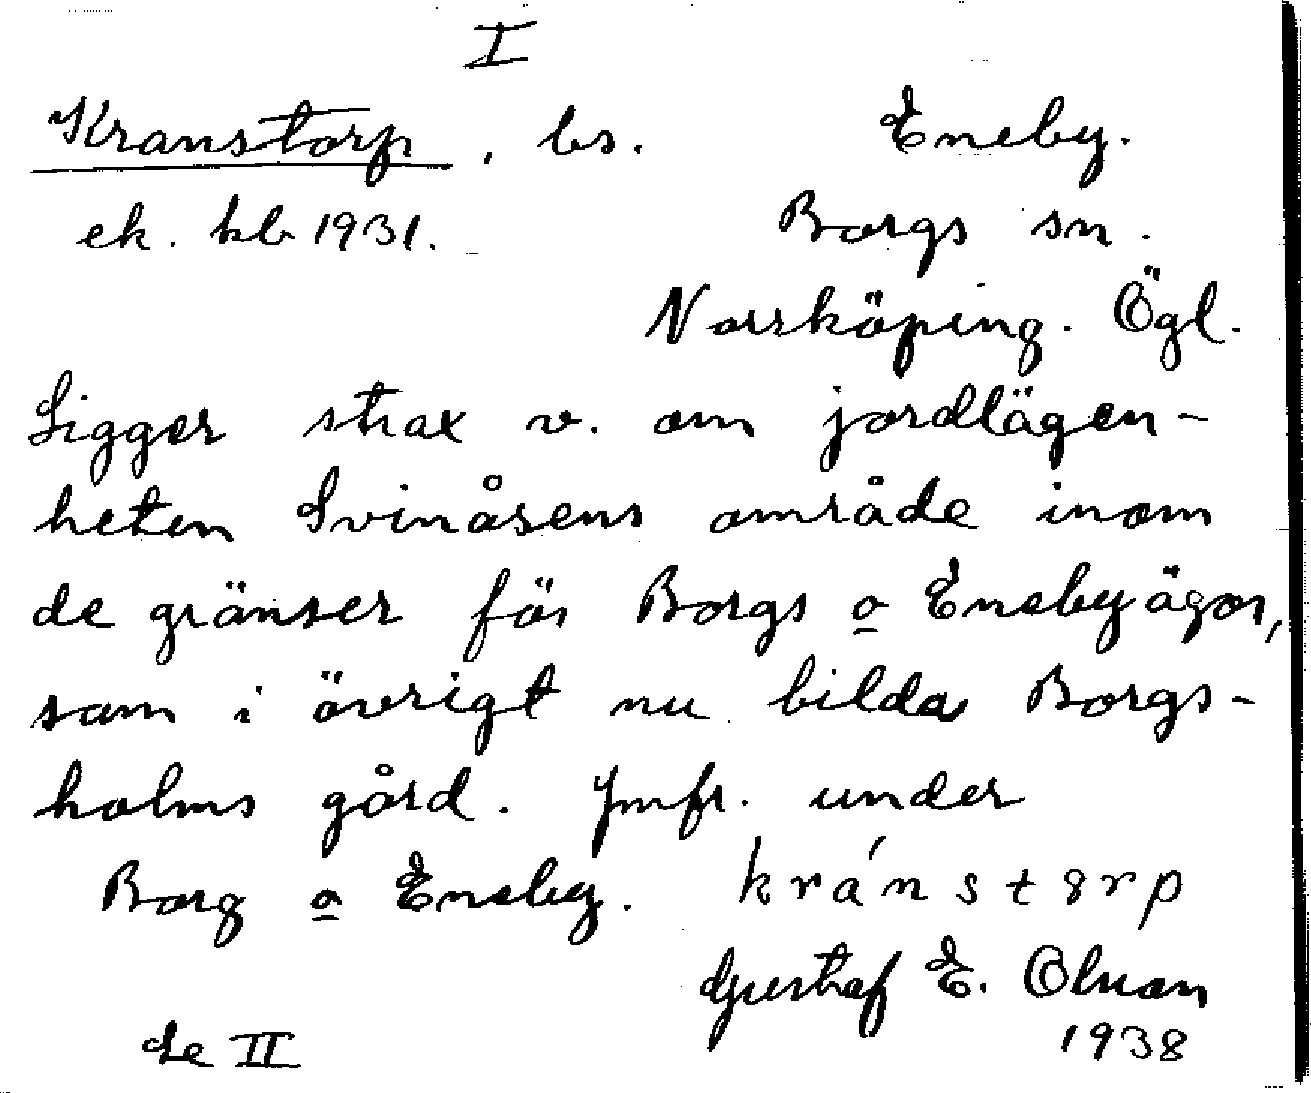 I
Kranstorp, bs. Eneby.
ek. kb 1931. Borgs sn.
Norrköping. Ögl.
Ligger strax v. om jordlägen-
heten Svinåsens område inom
de gränser för Borgs o Enebyägor,
som i övrigt nu bilda Borgs-
holms gård. Jmfr. under
Borg o Eneby. kránstȣrp
Gustaf E. Olsson
1938
Se II